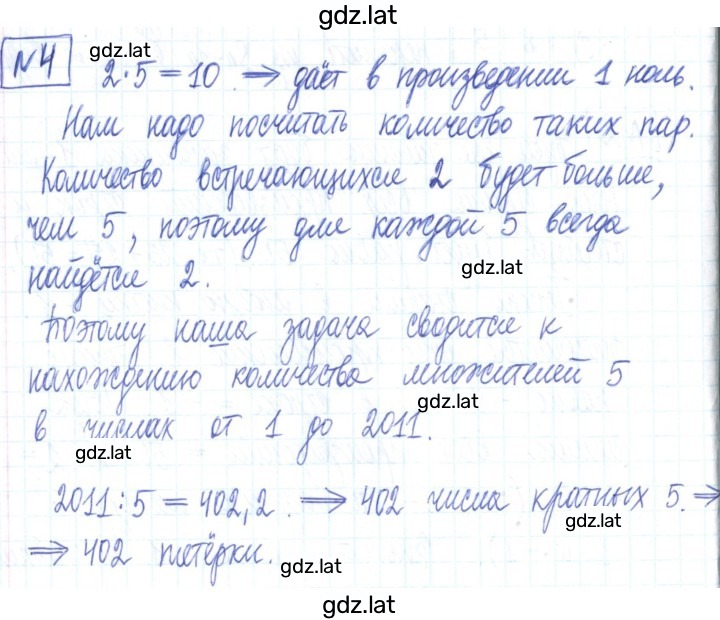 gdz.lat
№4 gdz.lat
2·5=10 ⇒ даёт в произведении 1 ноль.
Нам надо посчитать количество таких пар.
Количество встречающихся 2 будет больше,
чем 5, поэтому для каждой 5 всегда
найдётся 2. gdz.lat
Поэтому наша задача сводится к
нахождению количества множителей 5
gdz.lat
в числах от 1 до 2011.
gdz.lat
2011:5=402,2. ⇒ 402 числа кратных 5. ⇒
gdz.lat
⇒ 402 пятёрки. gdz.lat
gdz.lat